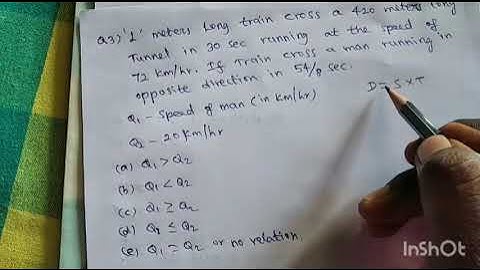 Q.3) 'L' meters long train cross a 420 meters long
Tunnel in 30 sec running at the speed of
72 km/hr. If Train cross a man running in
opposite direction in 54/8 sec.
Q1 - Speed of man (in km/hr)
D = S x T
Q2 - 20 km/hr
(a) Q1 > Q2
(b) Q1 < Q2
(c) Q1 ≥ Q2
(d) Q1 ≤ Q2
(e) Q1 = Q2 or no relation.
InShOt